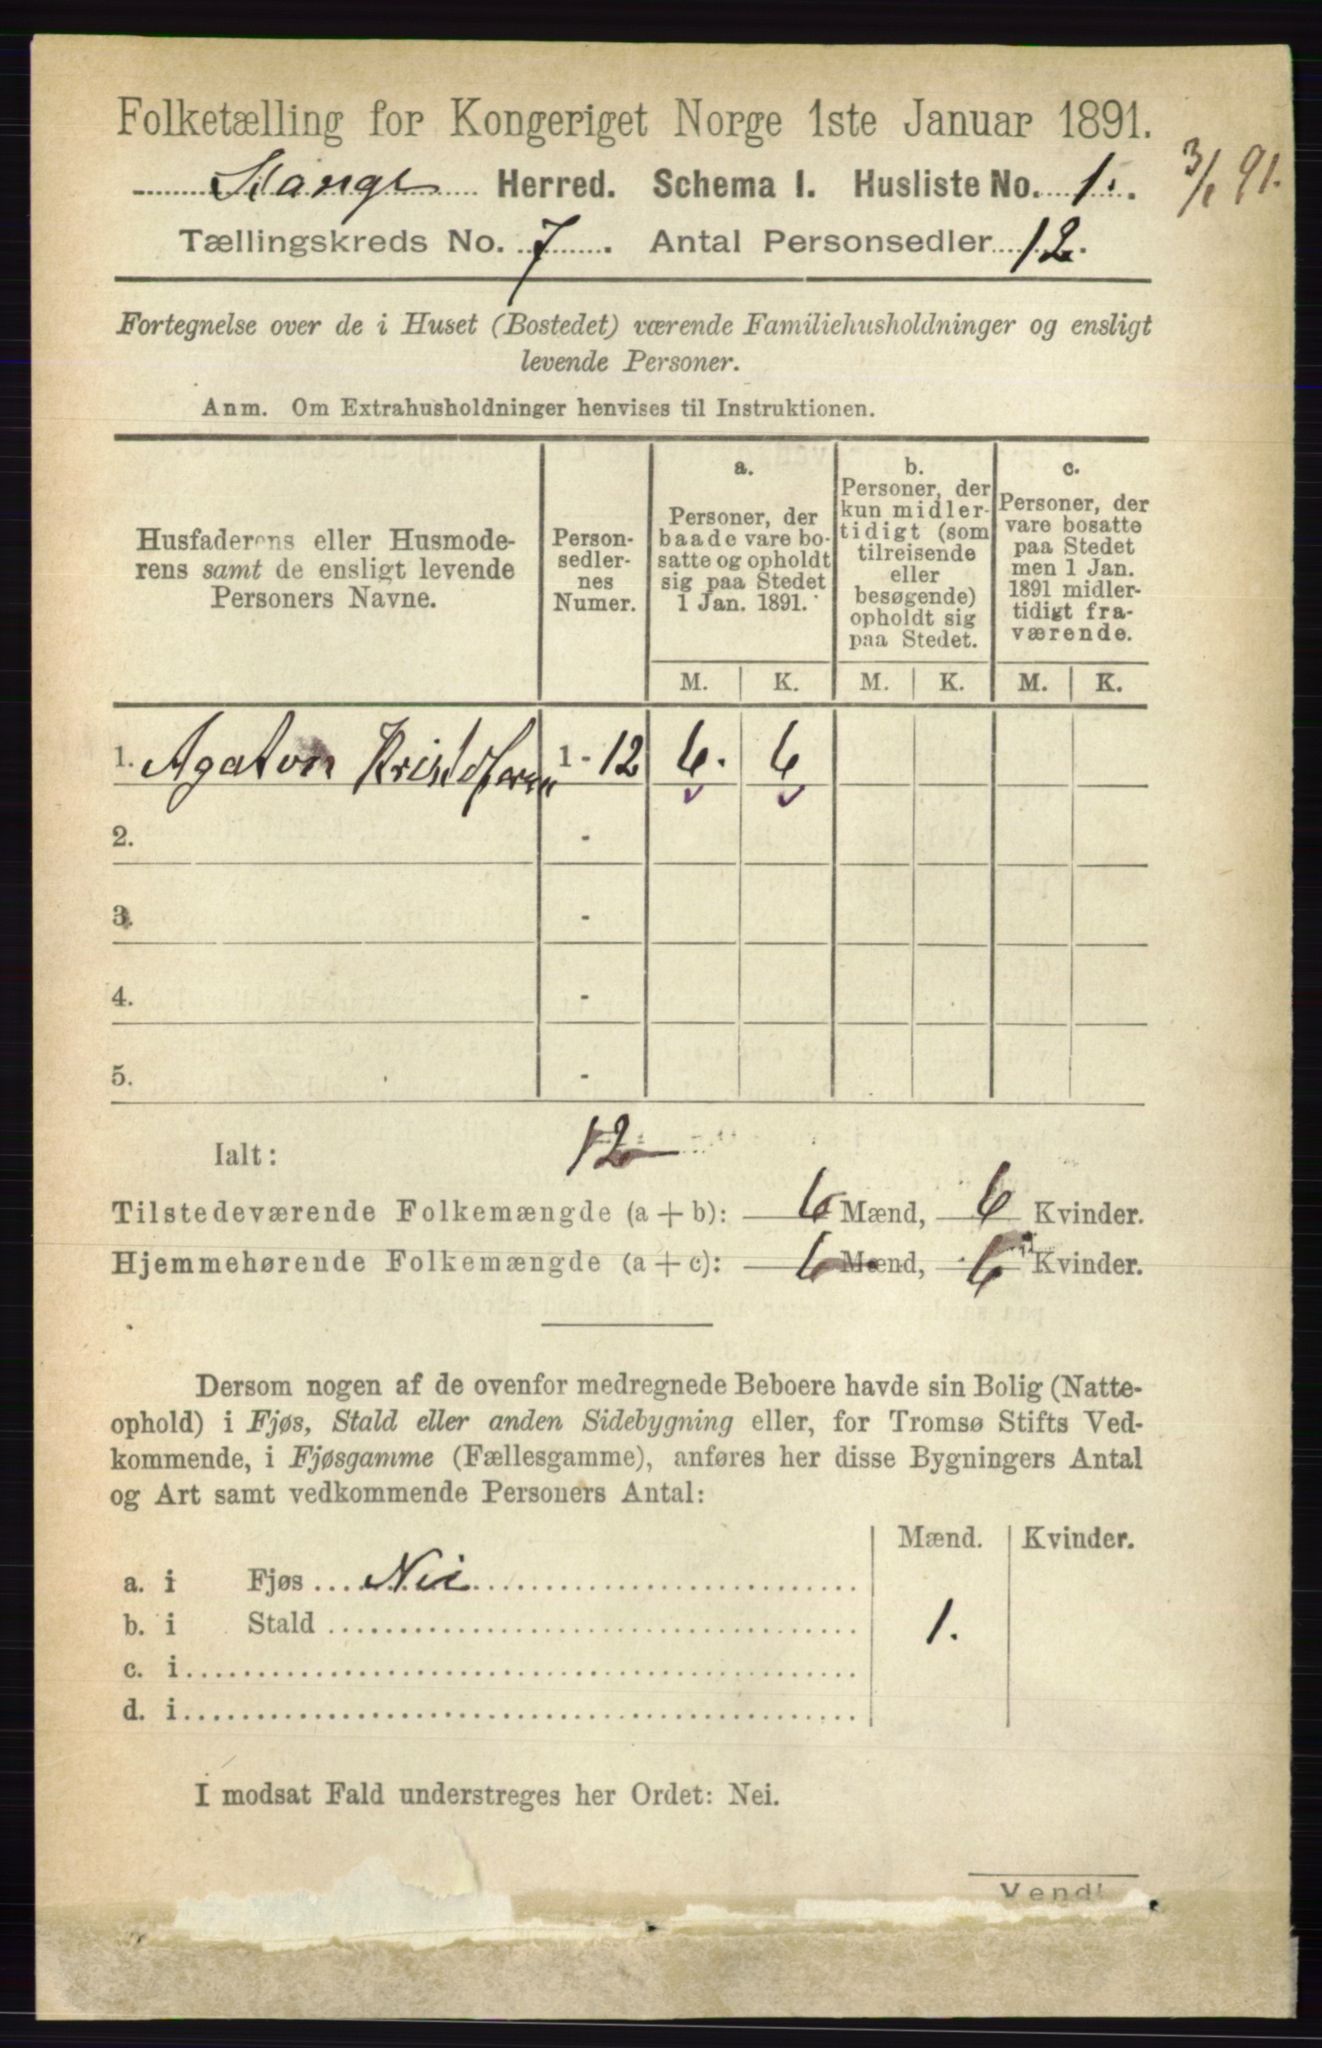 Folketælling for Kongeriget Norge 1ste Januar 1891.
Stange Herred. Schema I. Husliste No. 1.
3/1 91.
Tællingskreds No. 7. Antal Personsedler 12.
Fortegnelse over de i Huset (Bostedet) værende Familiehusholdninger og ensligt
levende Personer.
Anm. Om Extrahusholdninger henvises til Instruktionen.
Husfaderens eller Husmode-
rens samt de ensligt levende
Personers Navne.
Person-
sedler-
nes
Numer.
a.
Personer, der
baade vare bo-
satte og opholdt
sig paa Stedet
1 Jan. 1891.
b.
Personer, der
kun midler-
tidigt (som
tilreisende
eller
besøgende)
opholdt sig
paa Stedet.
c.
Personer, der
vare bosatte
paa Stedet
men 1 Jan.
1891 midler-
tidigt fra-
værende.
M. K. M. K. M. K.
1. Agaton 1 - 12 6. 6
2. -
3. -
4. -
5. -
Ialt: 12
Tilstedeværende Folkemængde (a + b): 6 Mænd, 6 Kvinder.
Hjemmehørende Folkemængde (a + c): 6 Mænd, 6 Kvinder.
Dersom nogen af de ovenfor medregnede Beboere havde sin Bolig (Natte-
ophold) i Fjøs, Stald eller anden Sidebygning eller, for Tromsø Stifts Ved-
kommende, i Fjøsgamme (Fællesgamme), anføres her disse Bygningers Antal
og Art samt vedkommende Personers Antal:
Mænd. Kvinder.
a. i Fjøs Nei
b. i Stald 1.
c. i
d. i
I modsat Fald understreges her Ordet: Nei.
Vend!